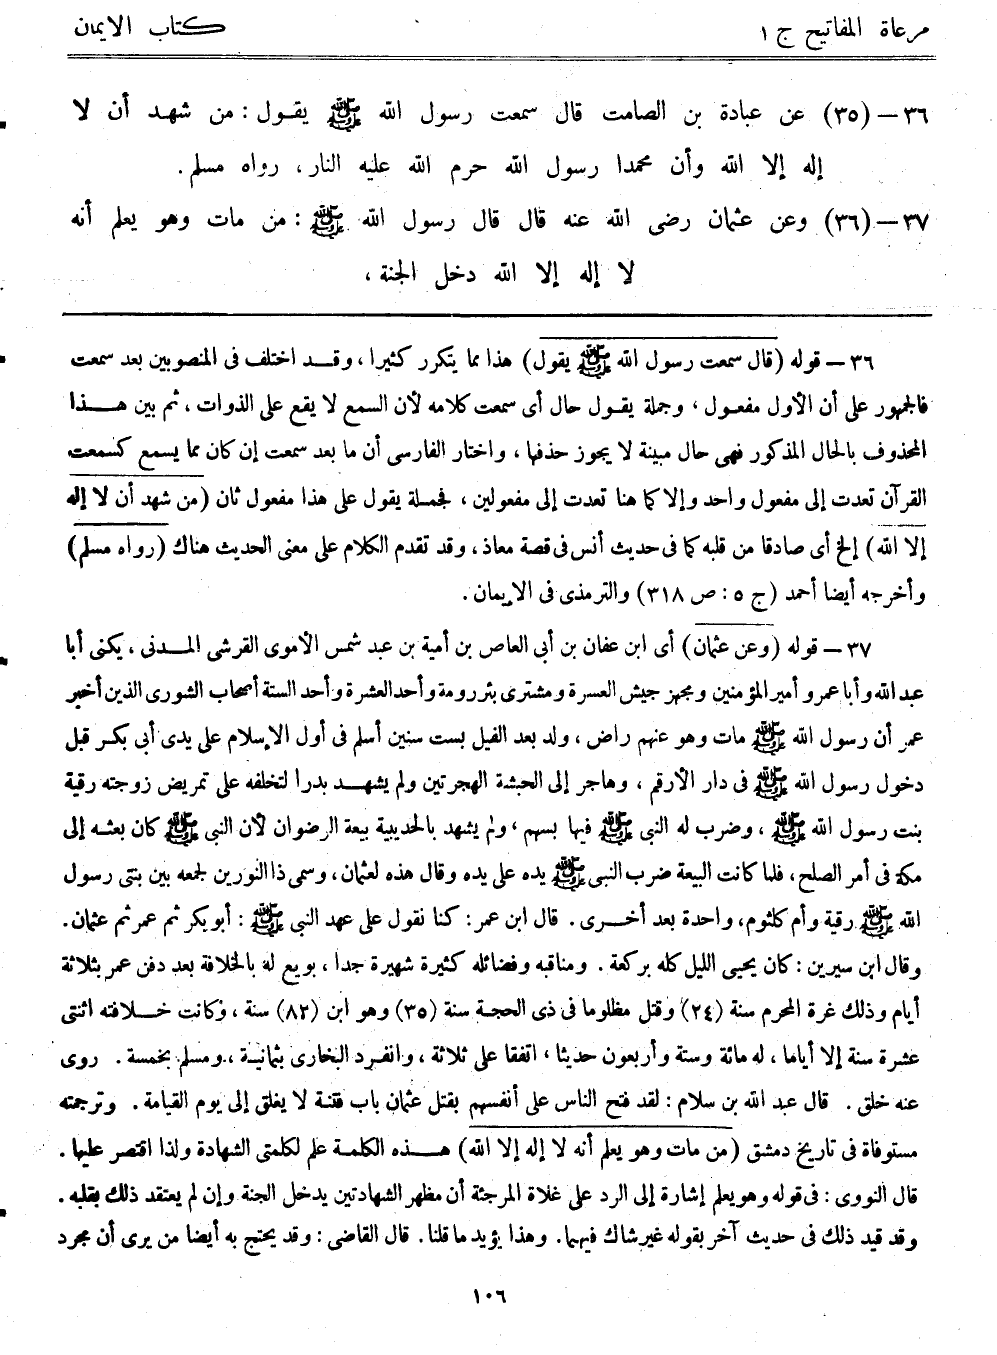 مرعاة المفاتيح ج ١
كتاب الايمان
٣٦ – (٣٥) عن عبادة بن الصامت قال سمعت رسول الله ﷺ يقول : من شهد أن لا
إله إلا الله وأن محمدا رسول الله حرم الله عليه النار، رواه مسلم .
٣٧ – (٣٦) وعن عثمان رضى الله عنه قال قال رسول الله ﷺ : من مات وهو يعلم أنه
لا إله إلا الله دخل الجنة ،
٣٦ – قوله (قال سمعت رسول الله ﷺ يقول) هذا مما يتكرر كثيرا ، وقد اختلف فى المنصوبين بعد سمعت
فالجمهور على أن الأول مفعول ، وجملة يقول حال أى سمعت كلامه لأن السمع لا يقع على الذوات ، ثم بين هذا
المحذوف بالحال المذكور فهى حال مبينة لا يجوز حذفها ، واختار الفارسى أن ما بعد سمعت إن كان مما يسمع كسمعت
القرآن تعدت إلى مفعول واحد وإلا كما هنا تعدت إلى مفعولين ، فجملة يقول على هذا مفعول ثان (من شهد أن لا إله
إلا الله) إلخ أى صادقا من قلبه كما فى حديث أنس فى قصة معاذ ، وقد تقدم الكلام على معنى الحديث هناك (رواه مسلم)
وأخرجه أيضا أحمد (ج ٥ : ص ٣١٨) والترمذى فى الإيمان .
٣٧ – قوله (وعن عثمان) أى ابن عفان بن أبي العاص بن أمية بن عبد شمس الأموى القرشى المدنى ، يكنى أبا
عبد الله وأبا عمرو أمير المؤمنين ومجهز جيش العسرة ومشترى بئر رومة وأحد العشرة وأحد الستة أصحاب الشورى الذين أخبر
عمر أن رسول الله ﷺ مات وهو عنهم راض ، ولد بعد الفيل بست سنين أسلم فى أول الإسلام على يدى أبي بكر قبل
دخول رسول الله ﷺ فى دار الأرقم ، وهاجر إلى الحبشة الهجرتين ولم يشهد بدرا لتخلفه على تمريض زوجته رقية
بنت رسول الله ﷺ ، وضرب له النبي ﷺ فيها بسهم ، ولم يشهد بالحديبية بيعة الرضوان لأن النبي ﷺ كان بعثه إلى
مكة فى أمر الصلح ، فلما كانت البيعة ضرب النبى ﷺ يده على يده وقال هذه لعثمان، وسمى ذا النورين لجمعه بين بنتى رسول
الله ﷺ رقية وأم كلثوم، واحدة بعد أخرى . قال ابن عمر : كنا نقول على عهد النبى ﷺ : أبوبكر ثم عمر ثم عثمان .
وقال ابن سيرين : كان يحيى الليل كله بركعة . ومناقبه وفضائله كثيرة شهيرة جدا ، بويع له بالخلافة بعد دفن عمر بثلاثة
أيام وذلك غرة المحرم سنة (٢٤) وقتل مظلوما فى ذى الحجة سنة (٣٥) وهو ابن (٨٢) سنة ، وكانت خلافته اثنتى
عشرة سنة إلا أياما ، له مائة وستة وأربعون حديثا ، اتفقا على ثلاثة ، وانفرد البخارى بثمانية ، ومسلم بخمسة . روى
عنه خلق . قال عبد الله بن سلام : لقد فتح الناس على أنفسهم بقتل عثمان باب فتنة لا يغلق إلى يوم القيامة . وترجمته
مستوفاة فى تاريخ دمشق (من مات وهو يعلم أنه لا إله إلا الله) هذه الكلمة علم لكلمتى الشهادة ولذا اقتصر عليها .
قال النووى : فى قوله وهو يعلم إشارة إلى الرد على غلاة المرجئة أن مظهر الشهادتين يدخل الجنة وإن لم يعتقد ذلك بقلبه .
وقد قيد ذلك فى حديث آخر بقوله غير شاك فيهما . وهذا يؤيد ما قلنا . قال القاضى : وقد يحتج به أيضا من يرى أن مجرد
١٠٦